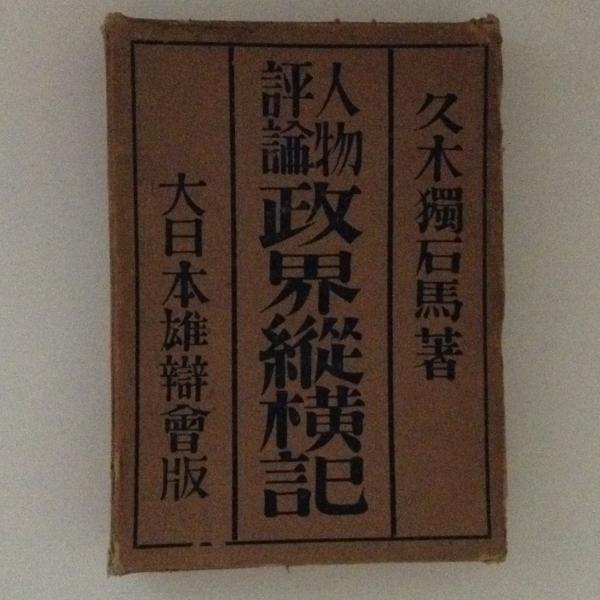 久木獨石馬著
人物
評論
政界縱橫記
大日本雄辯會版